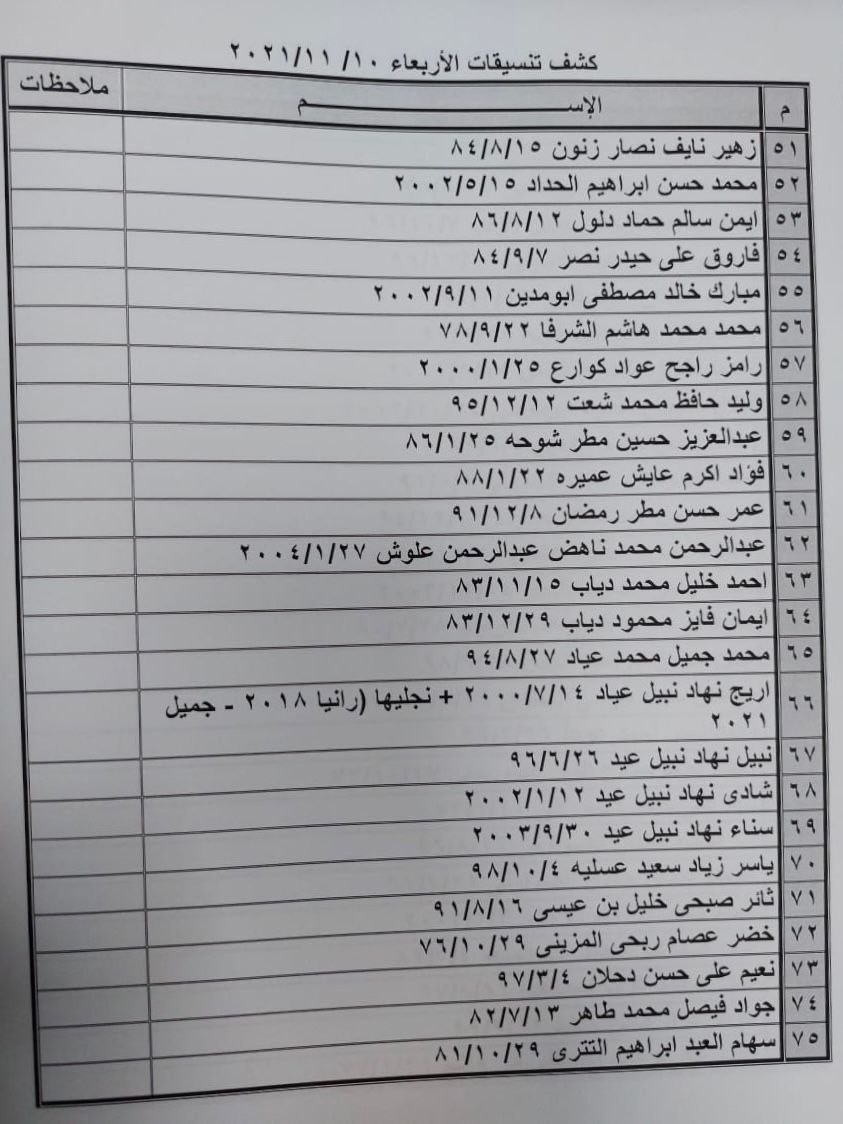 كشف تنسيقات الأربعاء ١٠/ ٢٠٢١/١١
م الإســـــــم ملاحظات
٥١ زهير نايف نصار زنون ٨٤/٨/١٥
٥٢ محمد حسن ابراهيم الحداد ٢٠٠٢/٥/١٥
٥٣ ايمن سالم حماد دلول ٨٦/٨/١٢
٥٤ فاروق على حيدر نصر ٨٤/٩/٧
٥٥ مبارك خالد مصطفى ابومدين ٢٠٠٢/٩/١١
٥٦ محمد محمد هاشم الشرفا ٧٨/٩/٢٢
٥٧ رامز راجح عواد كوارع ٢٠٠٠/١/٢٥
٥٨ وليد حافظ محمد شعت ٩٥/١٢/١٢
٥٩ عبدالعزيز حسين مطر شوحه ٨٦/١/٢٥
٦٠ فؤاد اكرم عايش عميره ٨٨/١/٢٢
٦١ عمر حسن مطر رمضان ٩١/١٢/٨
٦٢ عبدالرحمن محمد ناهض عبدالرحمن علوش ٢٠٠٤/١/٢٧
٦٣ احمد خليل محمد دياب ٨٣/١١/١٥
٦٤ ايمان فايز محمود دياب ٨٣/١٢/٢٩
٦٥ محمد جميل محمد عياد ٩٤/٨/٢٧
٦٦ اريج نهاد نبيل عياد ٢٠٠٠/٧/١٤ + نجليها (رانيا ٢٠١٨ - جميل
٢٠٢١
٦٧ نبيل نهاد نبيل عيد ٩٦/٦/٢٦
٦٨ شادى نهاد نبيل عيد ٢٠٠٢/١/١٢
٦٩ سناء نهاد نبيل عيد ٢٠٠٣/٩/٣٠
٧٠ ياسر زياد سعيد عسليه ٩٨/١٠/٤
٧١ ثائر صبحى خليل بن عيسى ٩١/٨/١٦
٧٢ خضر عصام ربحى المزينى ٧٦/١٠/٢٩
٧٣ نعيم على حسن دحلان ٩٧/٣/٤
٧٤ جواد فيصل محمد طاهر ٨٢/٧/١٣
٧٥ سهام العبد ابراهيم التترى ٨١/١٠/٢٩